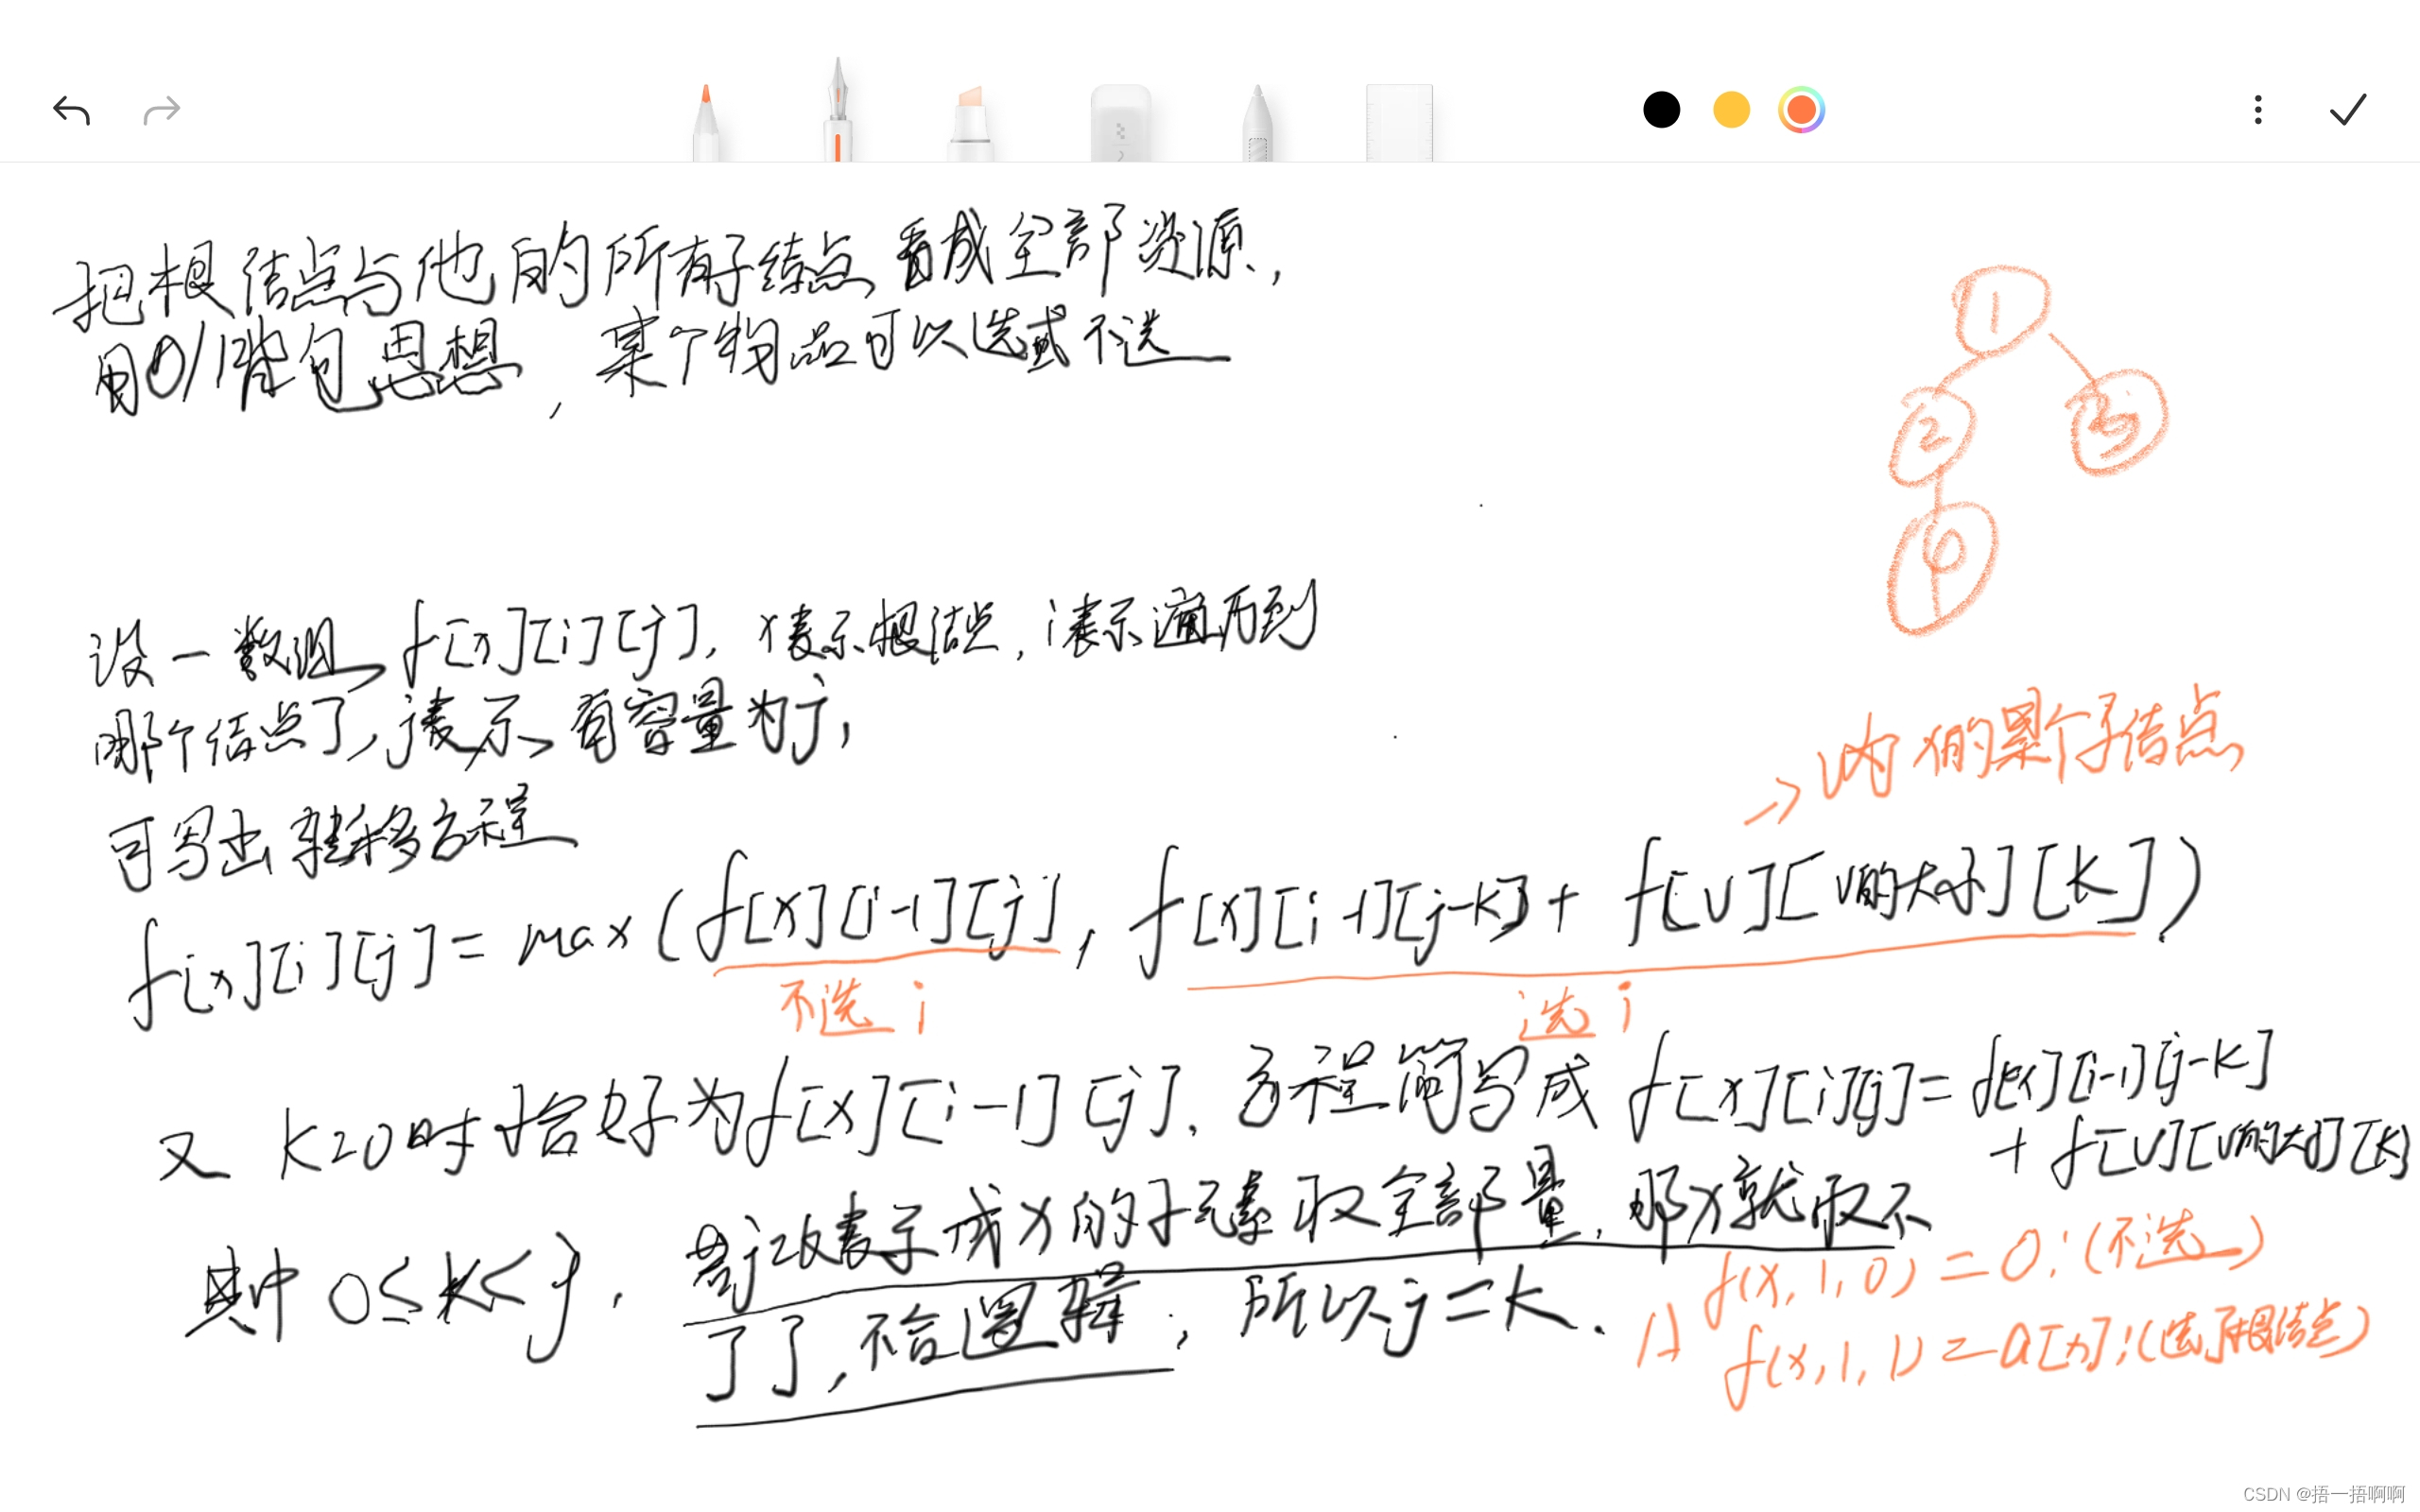 把根结点与他的所有子结点看成全部资源,
用0/1背包思想,某个物品可以选或不选
1
2
3
设一数组 f[x][i][j], x表示根结点, i表示遍历到
哪个结点了, j表示有容量为j,
→ V为x的某个子结点
可写出转移方程
f[x][i][j] = max(f[x][i-1][j], f[x][i-1][j-k] + f[v][v的大小][k])
不选 i
选 i
又 k=0时恰好为f[x][i-1][j]. 方程简写成 f[x][i][j] = f[x][i-1][j-k]
+ f[v][v的大小][k]
其中 0≤k<j. 若j=k表示成x的子元素取全部量,那x就取不
了了,不合逻辑; 所以j=k.
f(x,1,0) = 0; (不选)
f(x,1,1) = a[x]; (选了根结点)
CSDN @捂一捂啊啊